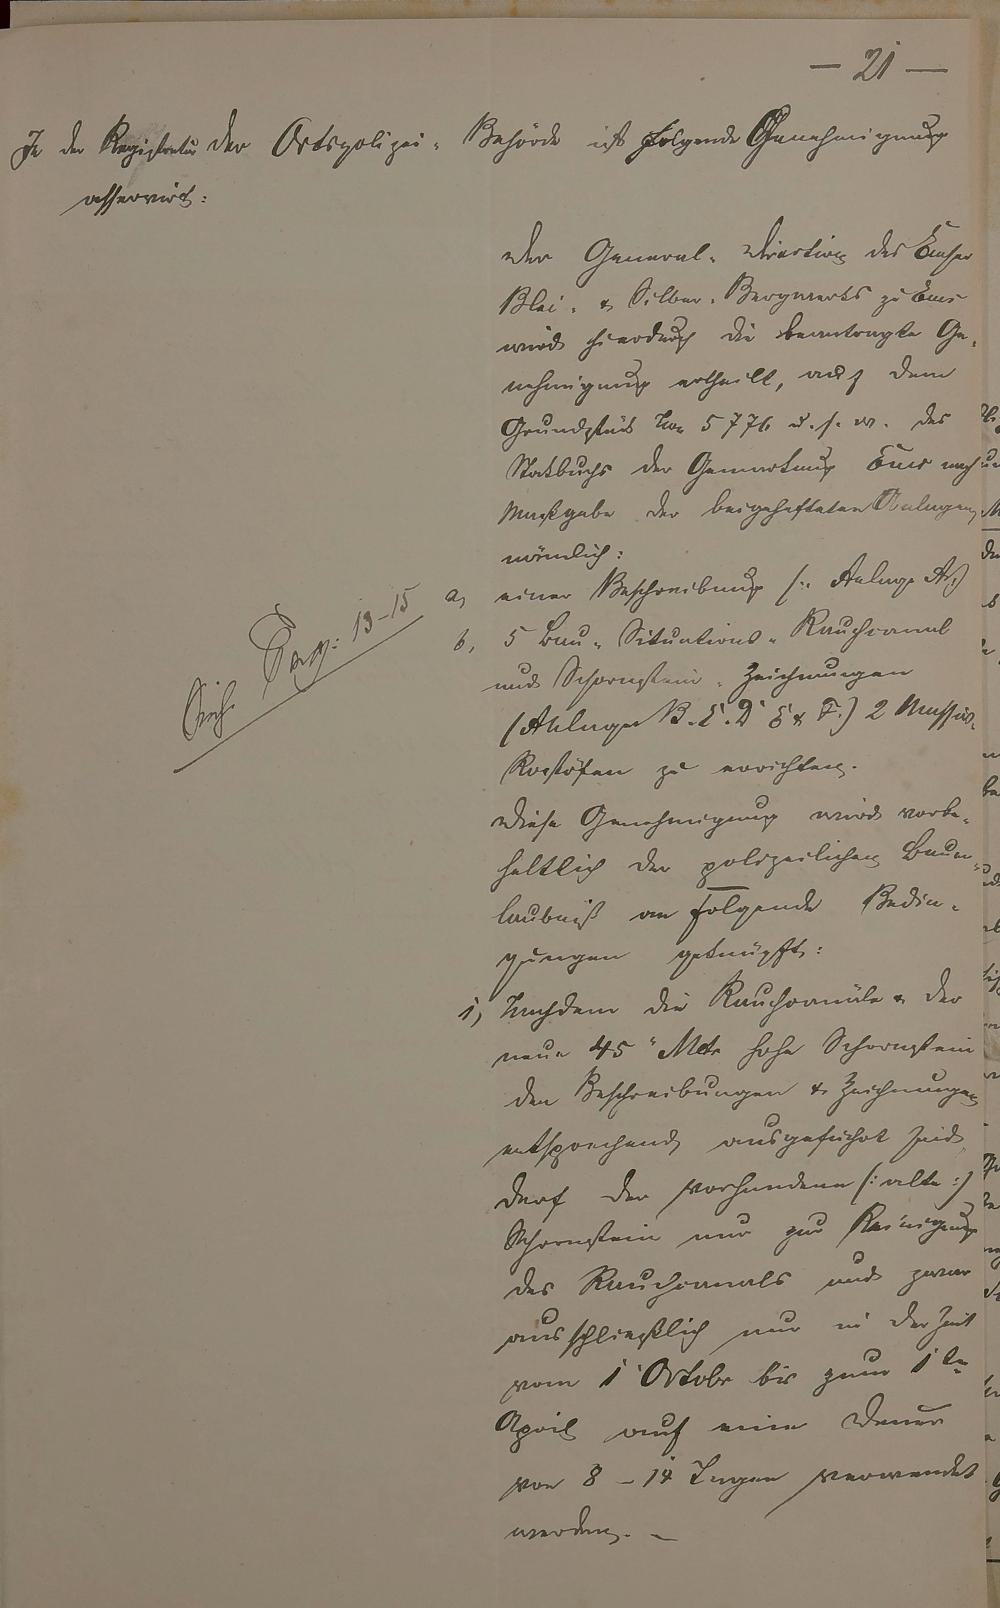 — 21 —
In der Registratur der Ortspolizei-Behörde ist folgende Genehmigung
asservirt:
Der General-Direction des Emser
Blei- & Silber-Bergwerks zu Ems
wird hierdurch die beantragte Ge-
nehmigung ertheilt, auf dem
Grundstück No 5776 u.s.w. des
Stockbuchs der Gemarkung Ems nach
Maßgabe der beigehefteten Anlagen
nämlich:
a, einer Beschreibung (: Anlage A:)
b, 5 Bau- Situations- Rauchcanal
und Schornstein-Zeichnungen
(Anlagen B. C. D E & F.) 2
Röstöfen zu errichten.
Sieh. Pag: 13-15
Diese Genehmigung wird vorbe-
haltlich der polizeilichen Bauer-
laubniß an folgende Bedin-
gungen geknüpft:
1, Nachdem die Rauchcanäle & der
neue 45 Mtr hohe Schornstein
den Beschreibungen & Zeichnungen
entsprechend ausgeführt sind
darf der vorhandene (: alte :)
Schornstein nur zur Reinigung
des Rauchcanals und zwar
ausschließlich nur in der Zeit
vom 1 October bis zum 1ten
April auf eine Dauer
von 8 – 14 Tagen verwendet
werden. —